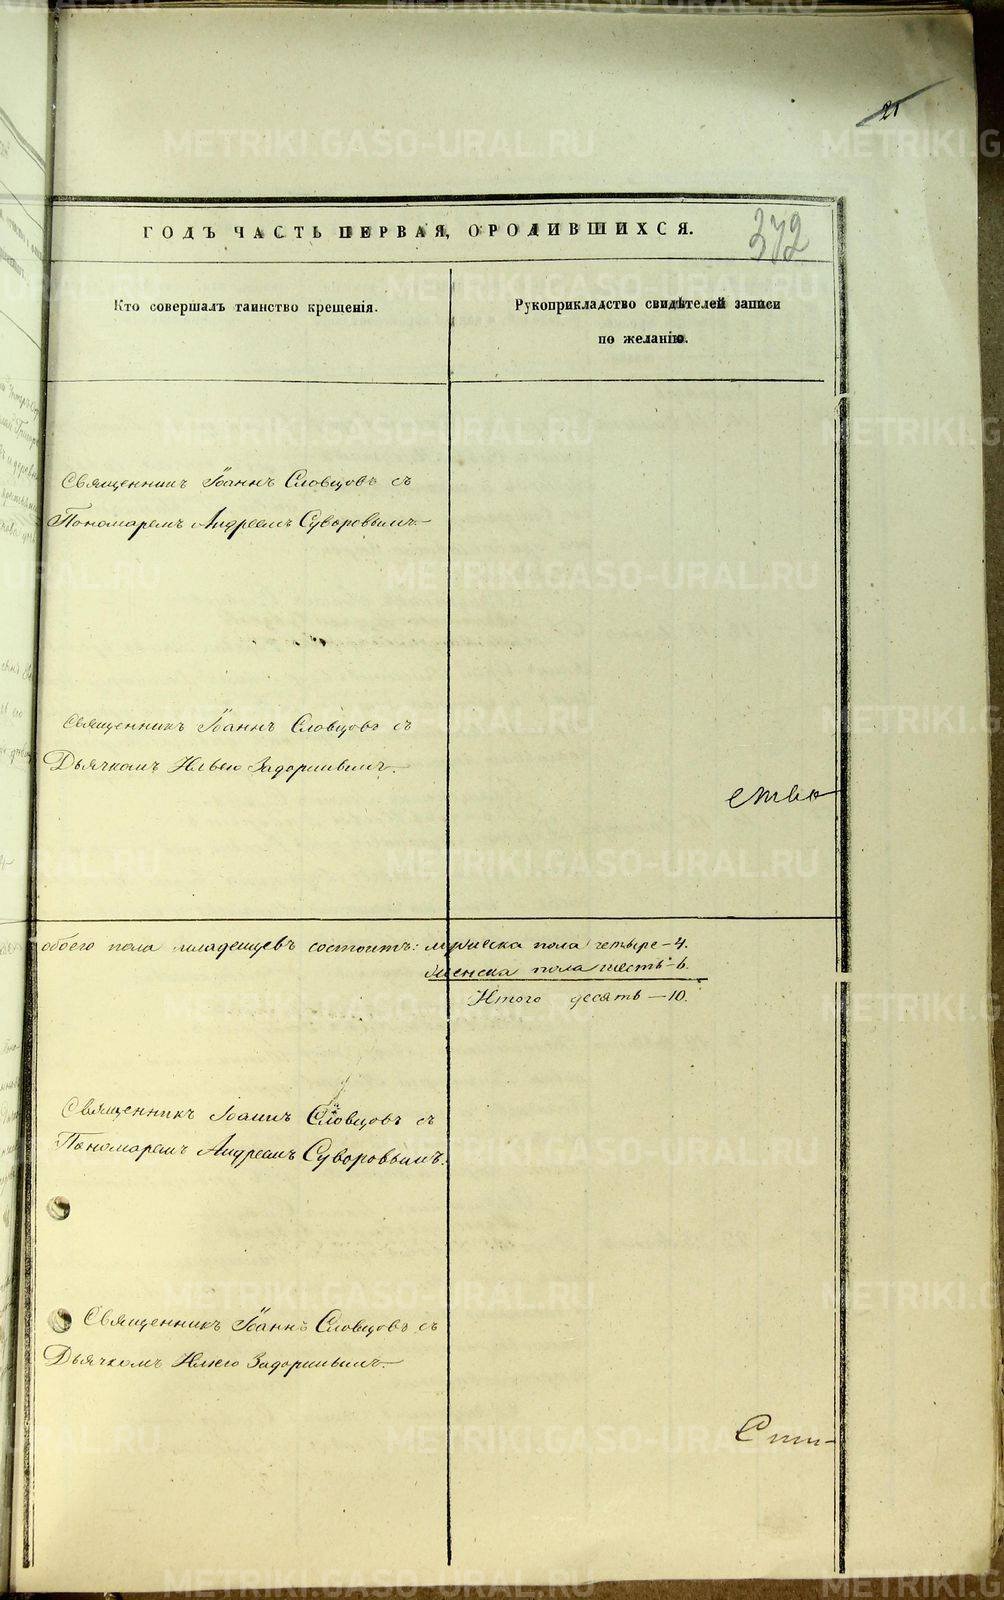 21
ГОДЪ ЧАСТЬ ПЕРВАЯ, О РОДИВШИХСЯ.
372
Кто совершалъ таинство крещенія.
Рукоприкладство свидѣтелей записи
по желанію.
Священникъ Іоаннъ Словцовъ съ
Пономаремъ Андреемъ Суворовымъ.
Священникъ Іоаннъ Словцовъ съ
Дьячкомъ Ильею Задоринымъ.
обоего пола младенцевъ состоитъ: мужеска пола четыре - 4.
женска пола шесть - 6.
Итого десять - 10.
Священникъ Іоаннъ Словцовъ съ
Пономаремъ Андреемъ Суворовымъ.
Священникъ Іоаннъ Словцовъ съ
Дьячкомъ Ильею Задоринымъ.
METRIKI.GASO-URAL.RU